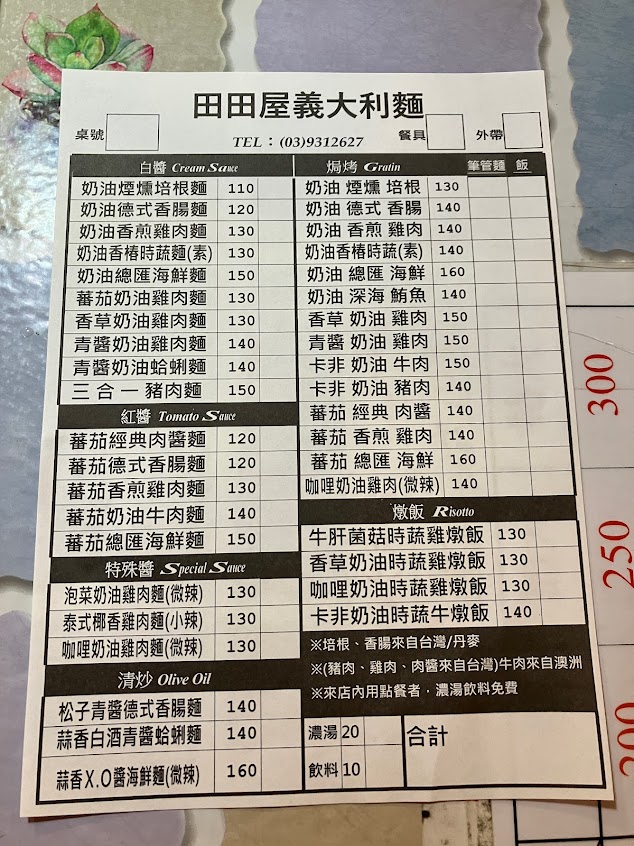 田田屋義大利麵
桌號
TEL：(03)9312627
餐具
外帶
白醬 Cream Sauce
奶油煙燻培根麵 110
奶油德式香腸麵 120
奶油香煎雞肉麵 130
奶油香椿時蔬麵(素) 130
奶油總匯海鮮麵 150
蕃茄奶油雞肉麵 130
香草奶油雞肉麵 130
青醬奶油雞肉麵 140
青醬奶油蛤蜊麵 140
三合一豬肉麵 150
紅醬 Tomato Sauce
蕃茄經典肉醬麵 120
蕃茄德式香腸麵 120
蕃茄香煎雞肉麵 130
蕃茄奶油牛肉麵 140
蕃茄總匯海鮮麵 150
特殊醬 Special Sauce
泡菜奶油雞肉麵(微辣) 130
泰式椰香雞肉麵(小辣) 130
咖哩奶油雞肉麵(微辣) 130
清炒 Olive Oil
松子青醬德式香腸麵 140
蒜香白酒青醬蛤蜊麵 140
蒜香X.O醬海鮮麵(微辣) 160
焗烤 Gratin 筆管麵 飯
奶油 煙燻 培根 130
奶油 德式 香腸 140
奶油 香煎 雞肉 140
奶油香椿時蔬(素) 140
奶油 總匯 海鮮 160
奶油 深海 鮪魚 140
香草 奶油 雞肉 150
青醬 奶油 雞肉 150
卡非 奶油 牛肉 150
卡非 奶油 豬肉 140
蕃茄 經典 肉醬 140
蕃茄 香煎 雞肉 140
蕃茄 總匯 海鮮 160
咖哩奶油雞肉(微辣) 140
燉飯 Risotto
牛肝菌菇時蔬雞燉飯 130
香草奶油時蔬雞燉飯 130
咖哩奶油時蔬雞燉飯 130
卡非奶油時蔬牛燉飯 140
※培根、香腸來自台灣/丹麥
※(豬肉、雞肉、肉醬來自台灣)牛肉來自澳洲
※來店內用點餐者，濃湯飲料免費
濃湯 20
飲料 10
合計
300
250
200